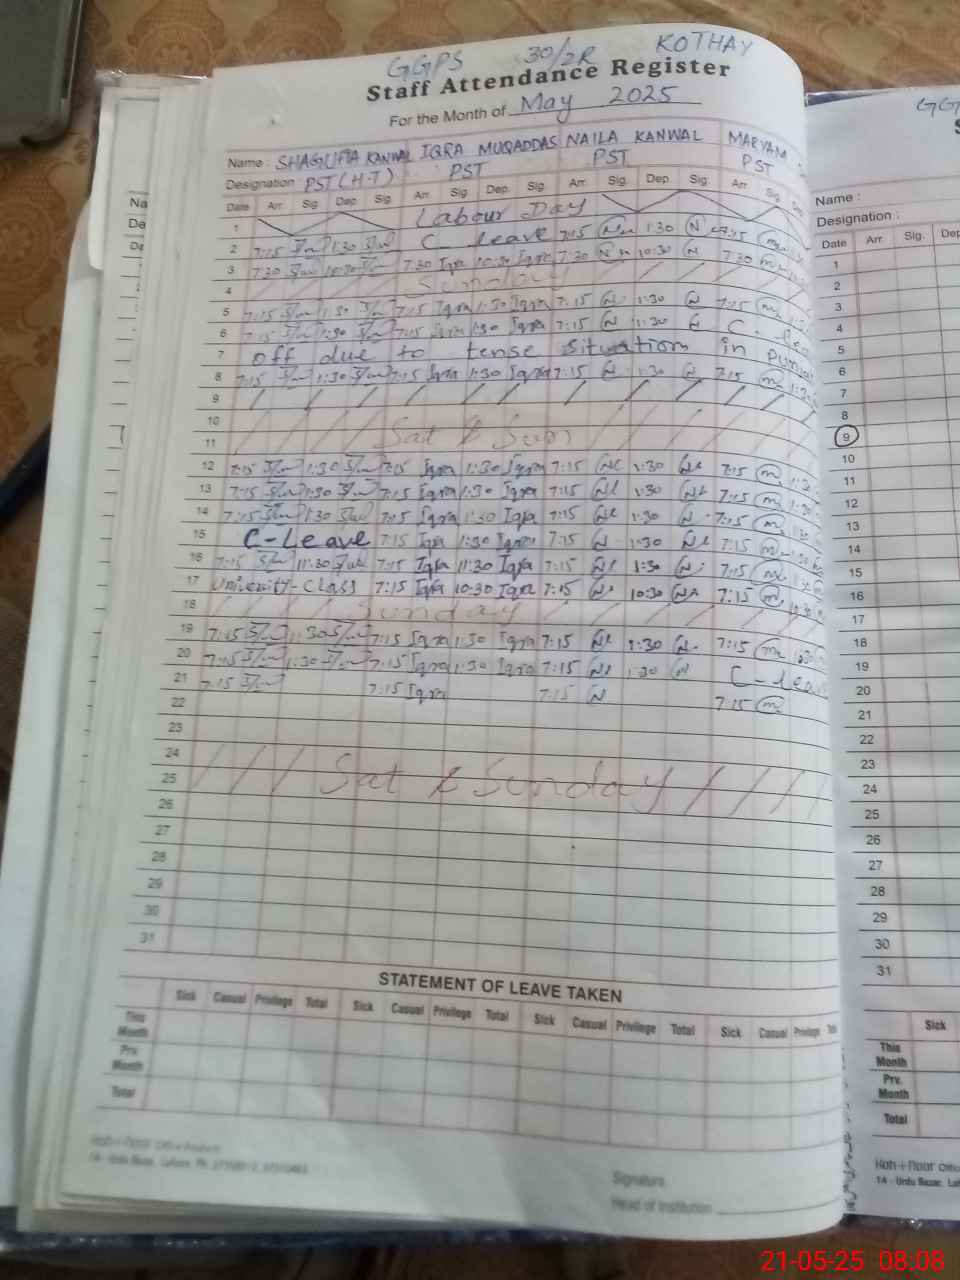 GGPS 30/2R KOTHAY
Staff Attendance Register
For the Month of May 2025
Name : SHAGUFTA KANWAL IQRA MUQADDAS NAILA KANWAL MARYAM
Designation PST (H.T) PST PST PST
Date Arr. Sig. Dep. Sig. Arr. Sig. Dep. Sig. Arr. Sig. Dep. Sig. Arr. Sig.
1 Labour Day
2 7:15 1:30 C-leave 7:15 1:30 N 7:15
3 7:30 10:30 7:30 Iqra 10:30 Iqra 7:30 10:30 N 7:30
4 Sunday
5 7:15 1:30 7:15 Iqra 1:30 Iqra 7:15 N 1:30 N 7:15
6 7:15 1:30 7:15 Iqra 1:30 Iqra 7:15 N 1:30 N C-lea
7 off due to tense situation in Punjab
8 7:15 1:30 7:15 Iqra 1:30 Iqra 7:15 N 1:30 N 7:15 m 1:30
9
10
11 Sat & Sun
12 7:15 1:30 7:15 Iqra 1:30 Iqra 7:15 1:30 7:15 m 1:30
13 7:15 1:30 7:15 Iqra 1:30 Iqra 7:15 1:30 7:15 m 1:30
14 7:15 1:30 7:15 Iqra 1:30 Iqra 7:15 1:30 N 7:15 m 1:30
15 C-Leave 7:15 Iqra 1:30 Iqra 7:15 N 1:30 7:15 m 1:30
16 7:15 11:30 7:15 Iqra 11:30 Iqra 7:15 1:30 N 7:15 1:30
17 University-Class 7:15 Iqra 10:30 Iqra 7:15 10:30 7:15 m 10:30
18 Sunday
19 7:15 1:30 7:15 Iqra 1:30 Iqra 7:15 1:30 7:15 1:30
20 7:15 1:30 7:15 Iqra 1:30 Iqra 7:15 1:30 N C-leav
21 7:15 7:15 Iqra 7:15 N 7:15 m
22
23
24
25 Sat & Sunday
26
27
28
29
30
31
STATEMENT OF LEAVE TAKEN
Sick Casual Privilege Total Sick Casual Privilege Total Sick Casual Privilege Total Sick Casual Privilege
This Month
Prv. Month
Total
Koh-i-Noor Office Products
14 - Urdu Bazar, Lahore. Ph:
Signature
Head of Institution
Name :
Designation :
Date Arr. Sig. Dep
1
2
3
4
5
6
7
8
9
10
11
12
13
14
15
16
17
18
19
20
21
22
23
24
25
26
27
28
29
30
31
Sick
This Month
Prv. Month
Total
Koh-i-Noor
14 - Urdu Bazar,
21-05-25 08:08